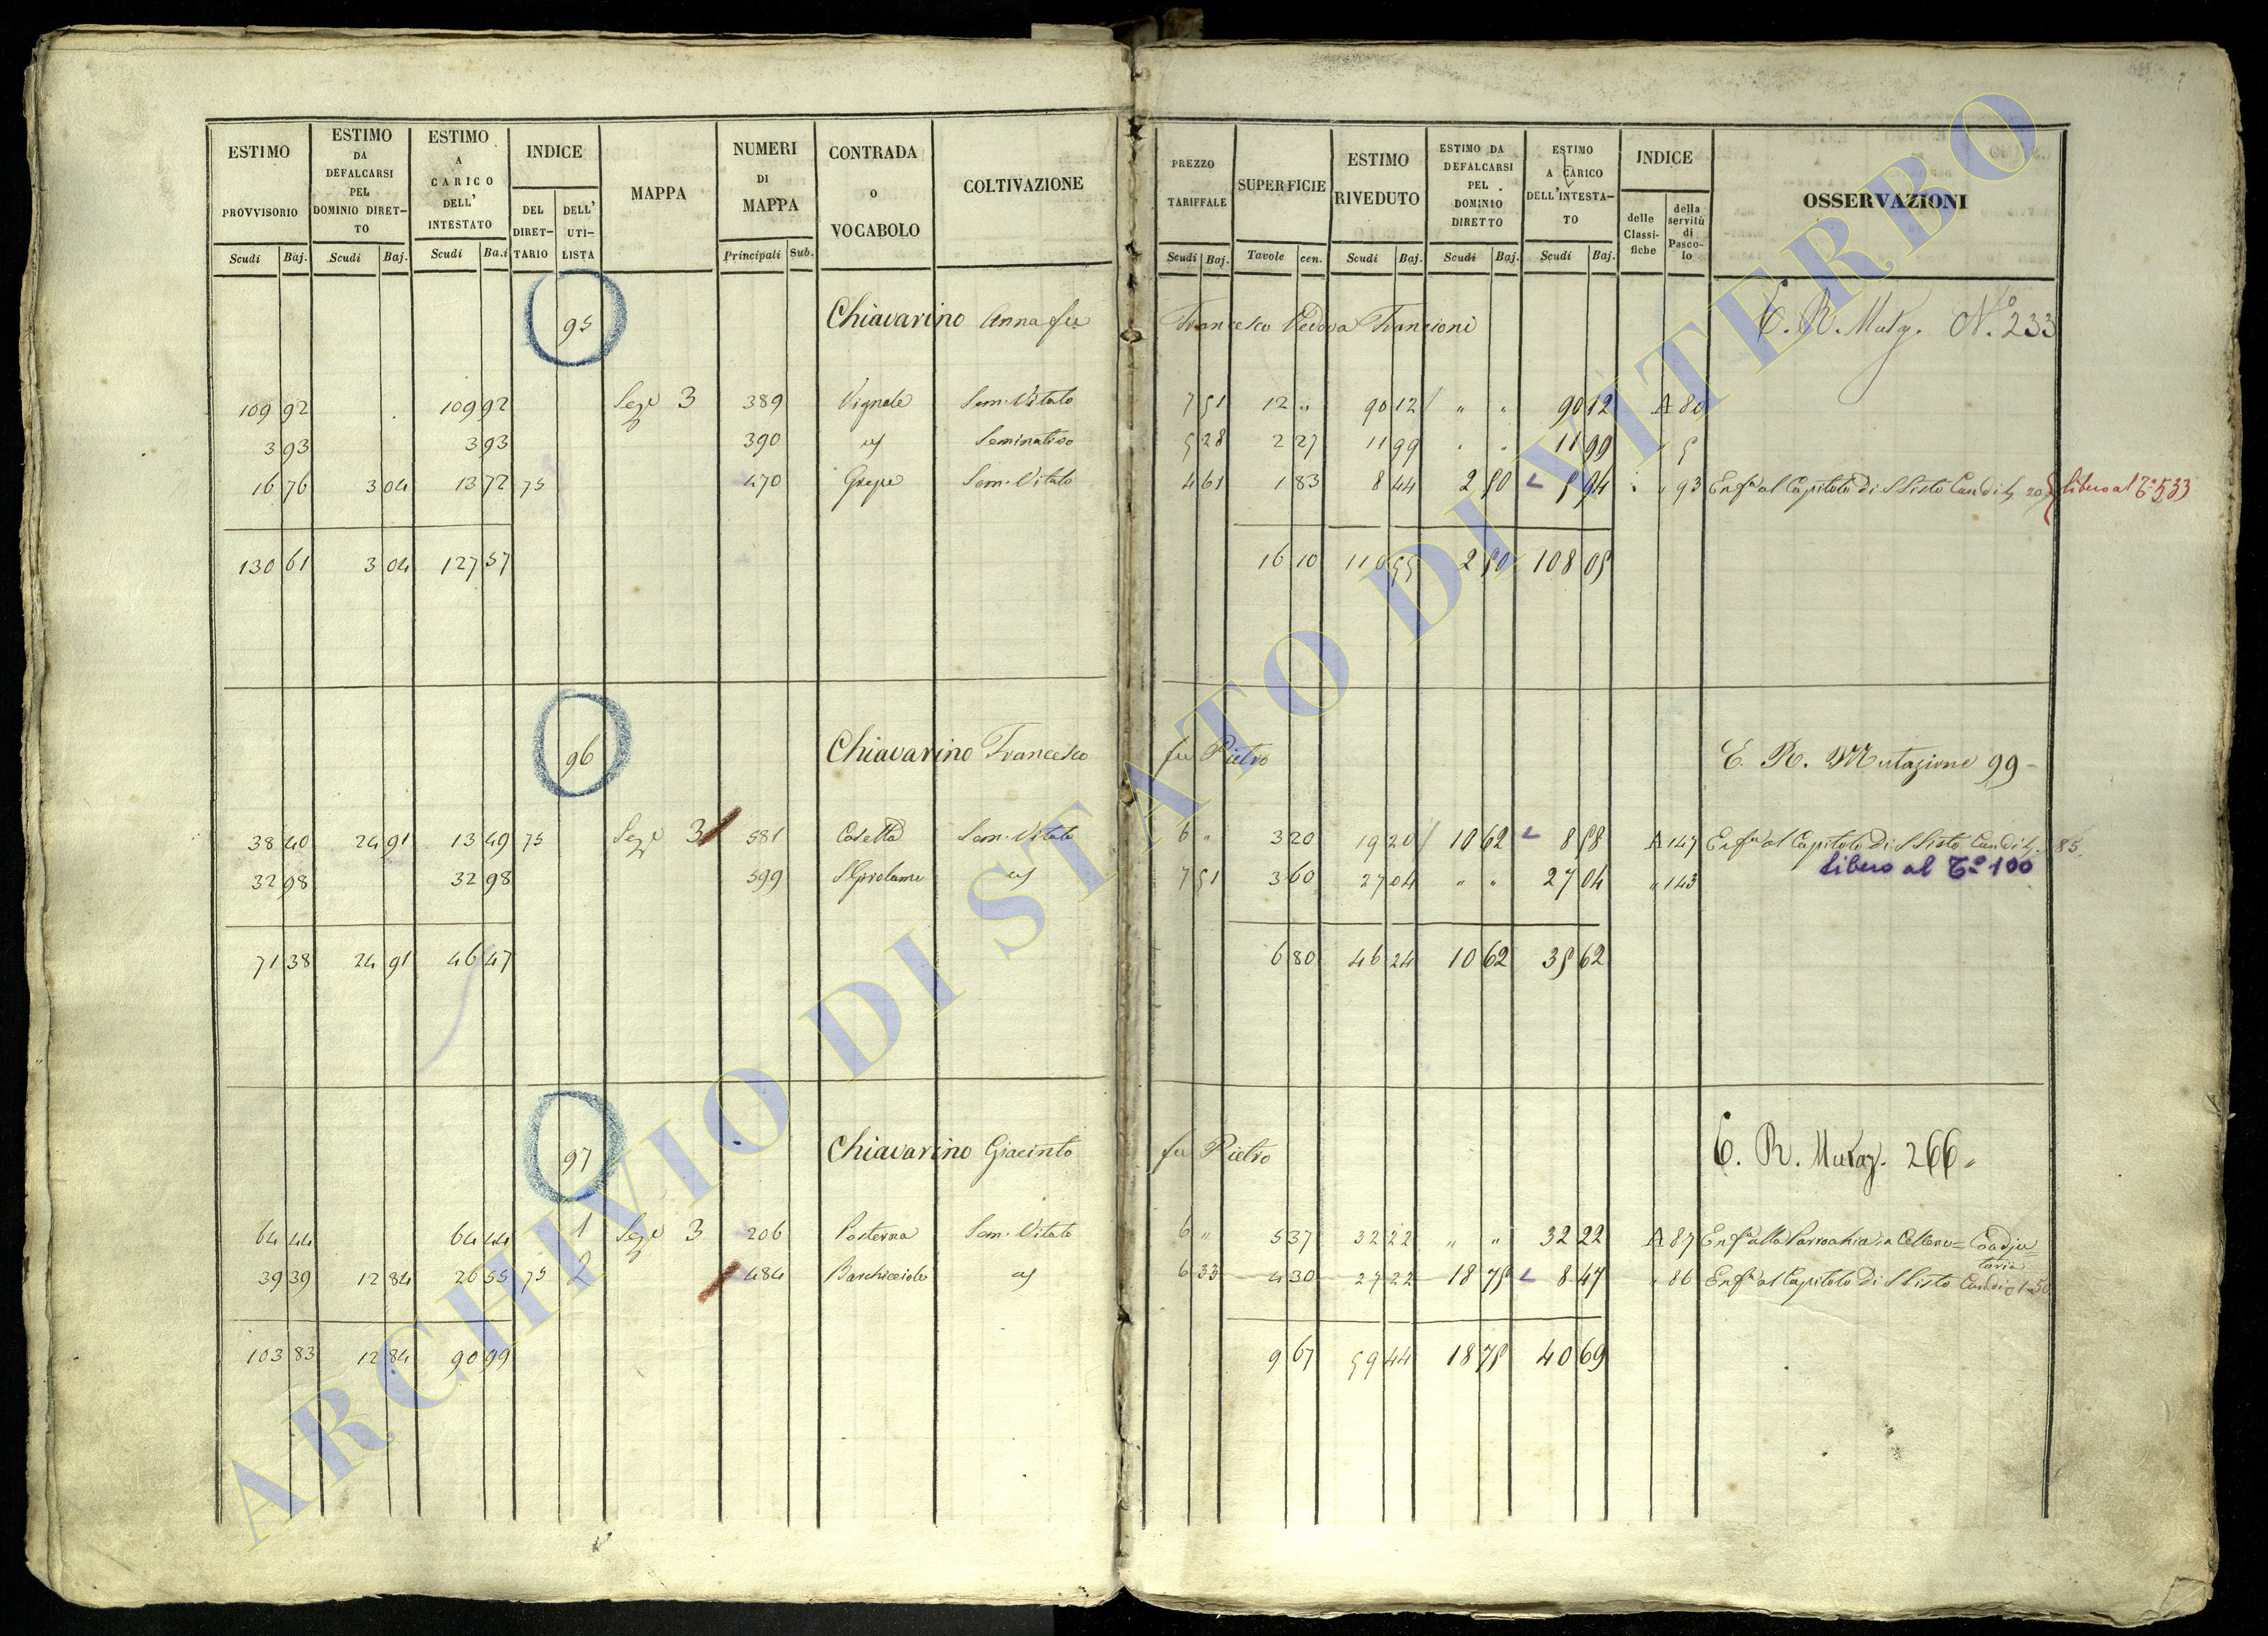 ESTIMO PROVVISORIO Scudi Baj.
ESTIMO DA DEFALCARSI PEL DOMINIO DIRETTO Scudi Baj.
ESTIMO A CARICO DELL' INTESTATO Scudi Ba.i
INDICE DEL DIRETTARIO DELL' UTILISTA
MAPPA
NUMERI DI MAPPA Principali Sub.
CONTRADA O VOCABOLO
COLTIVAZIONE
PREZZO TARIFFALE Scudi Baj.
SUPERFICIE Tavole cen.
ESTIMO RIVEDUTO Scudi Baj.
ESTIMO DA DEFALCARSI PEL DOMINIO DIRETTO Scudi Baj.
ESTIMO A CARICO DELL'INTESTATO Scudi Baj.
INDICE delle Classifiche della servitù di Pascolo
OSSERVAZIONI
95 Chiavarino Anna fu Francesco Vedova Francioni C. R. Mutaz. N.° 233
109 92 109 92 Sez.e 3 389 Vignale Sem. Vitato 7 51 12 " 90 12 " " 90 12 A 80
3 93 3 93 390 id Seminativo 5 28 2 27 11 99 " " 11 99 " 5
16 76 3 04 13 72 75 470 Grepe Sem. Vitato 4 61 1 83 8 44 2 50 5 94 " 93 Enf.a al Capitolo di S Sisto 20 libero al T.° 533
130 61 3 04 127 57 16 10 110 55 2 50 108 05
96 Chiavarino Francesco fu Pietro C. R. Mutazione 99
38 40 24 91 13 49 75 Sez.e 3 581 Casetta Sem. Vitato 6 " 3 20 19 20 10 62 8 58 A 147 Enf.a al Capitolo di S Sisto 85
libero al T.° 100
32 98 32 98 599 S Girolamo id 7 51 3 60 27 04 " " 27 04 " 143
71 38 24 91 46 47 6 80 46 24 10 62 35 62
97 Chiavarino Giacinto fu Pietro C. R. Mutaz. 266
64 44 64 44 1 Sez.e 3 206 Posterna Sem. Vitato 6 " 5 37 32 22 " " 32 22 A 87 Enf.a alla Parrochia in Celleno = Coadjutoria
39 39 12 84 26 55 75 2 484 Barchicciolo id 6 33 4 30 27 22 18 75 8 47 " 86 Enf.a al Capitolo di S Sisto 1.50
103 83 12 84 90 99 9 67 59 44 18 75 40 69
ARCHIVIO DI STATO DI VITERBO